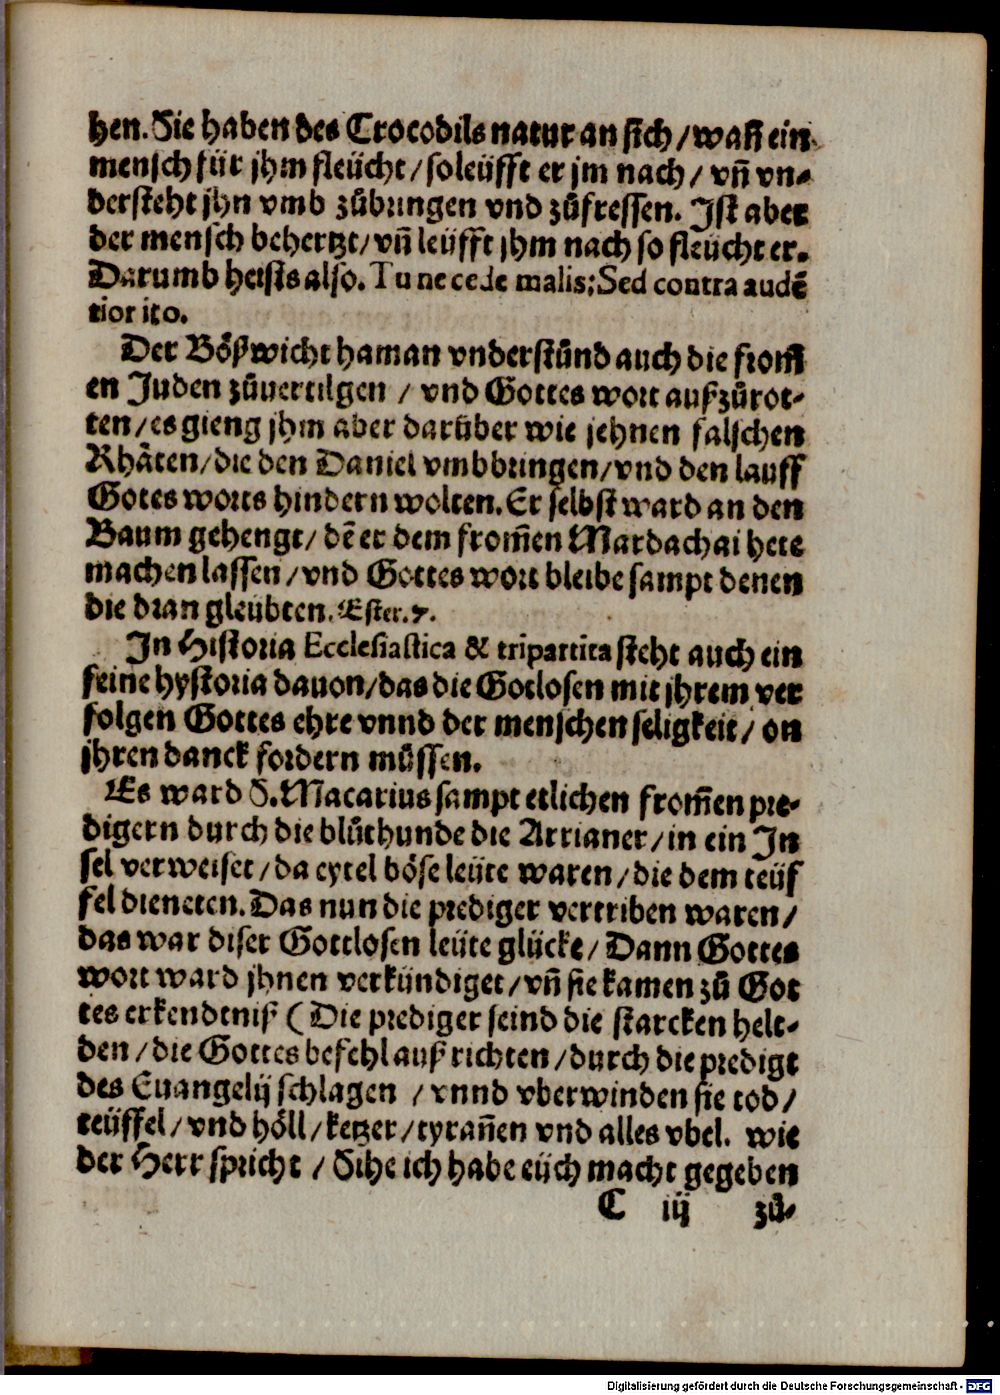 hen. Sie haben des Crocodils natur an sich / wañ ein
mensch für jhm fleücht / so leüfft er jm nach / vñ vn-
dersteht jhn vmb zůbringen vnd zůfressen. Ist aber
der mensch behertzt / vñ leüfft jhm nach so fleücht er.
Darumb heists also. Tu ne cede malis; Sed contra audē
tior ito.
Der Bößwicht haman vnderstůnd auch die from̃
en Juden zůuertilgen / vnd Gottes wort außzůrot-
ten / es gieng jhm aber darüber wie jehnen falschen
Rhäten / die den Daniel vmbbringen / vnd den lauff
Gotes worts hindern wolten. Er selbst ward an den
Baum gehengt / dē er dem from̃en Mardachai hete
machen lassen / vnd Gottes wort bleibe sampt denen
die dran gleübten. Ester. 7.
In Historia Ecclesiastica & tripartita steht auch ein
feine hystoria dauon / das die Gotlosen mit jhrem ver
folgen Gottes ehre vnnd der menschen seligkeit / on
jhren danck fordern müssen.
Es ward S. Macarius sampt etlichen from̃en pre-
digern durch die blůthunde die Arrianer / in ein In
sel verweiset / da eytel böse leüte waren / die dem teüf
fel dieneten. Das nun die prediger vertriben waren /
das war diser Gottlosen leüte glücke / Dann Gottes
wort ward jhnen verkündiget / vñ sie kamen zů Got
tes erkendtniß ( Die prediger seind die starcken hel-
den / die Gottes befehl auß richten / durch die predigt
des Euangelij schlagen / vnnd vberwinden sie tod /
teüffel / vnd höll / ketzer / tyrañen vnd alles vbel. wie
der Herr spricht / Sihe ich habe eüch macht gegeben
C iij zů-
Digitalisierung gefördert durch die Deutsche Forschungsgemeinschaft - DFG